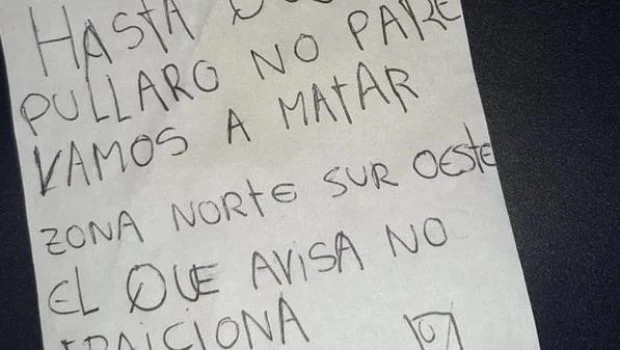 HASTA
PULLARO NO PARE
VAMOS A MATAR
ZONA NORTE SUR OESTE
EL QUE AVISA NO
TRAICIONA